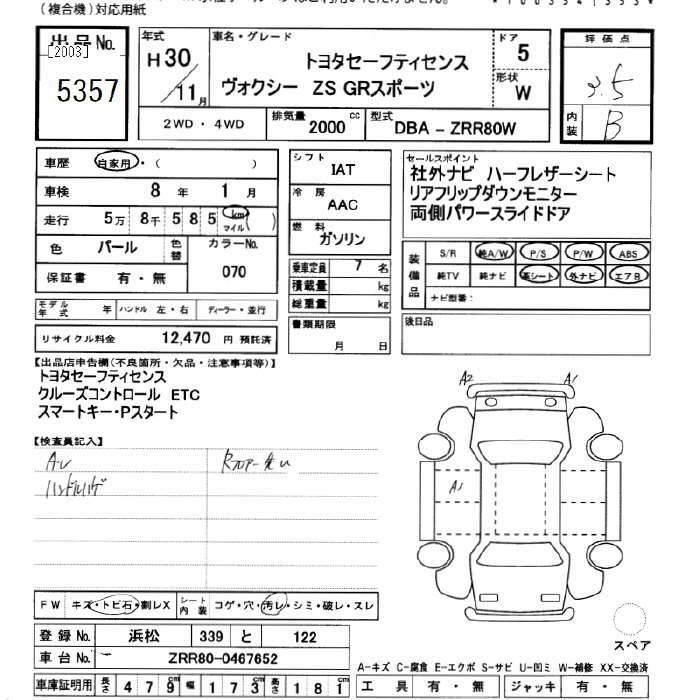 (複合機)対応用紙
出品No.
[2003]
5357
年式
H30/11月
車名・グレード
トヨタセーフティセンス
ヴォクシー ZS GRスポーツ
ドア
5
形状
W
評価点
3.5
内装
B
2WD・4WD
排気量
2000 cc
型式
DBA - ZRR80W
車歴 自家用・( )
車検 8年 1月
走行 5万 8千 5 8 5 km マイル( )
色 パール
色替
カラーNo.
070
保証書 有・無
モデル年式 年 ハンドル 左・右 ディーラー・並行
リサイクル料金 12,470 円 預託済
シフト
IAT
冷房
AAC
燃料
ガソリン
乗車定員 7 名
積載量 kg
総重量 kg
書類期限
月 日
セールスポイント
社外ナビ ハーフレザーシート
リアフリップダウンモニター
両側パワースライドドア
装備品
S/R 純A/W P/S P/W ABS
純TV 純ナビ 革シート 外ナビ エアB
ナビ型番:
後日品
【出品店申告欄(不良箇所・欠品・注意事項等)】
トヨタセーフティセンス
クルーズコントロール ETC
スマートキー・Pスタート
【検査員記入】
ハンドルハゲ
A2 A1
A1
FW キズ・トビ石・割レX
シート内装 コゲ・穴・汚レ・シミ・破レ・スレ
登録No. 浜松 339 と 122
車台No. ZRR80-0467652
車庫証明用 長さ 479cm 幅 173cm 高さ 181cm
スペア
A-キズ C-腐食 E-エクボ S-サビ U-凹ミ W-補修 XX-交換済
工具 有・無 ジャッキ 有・無